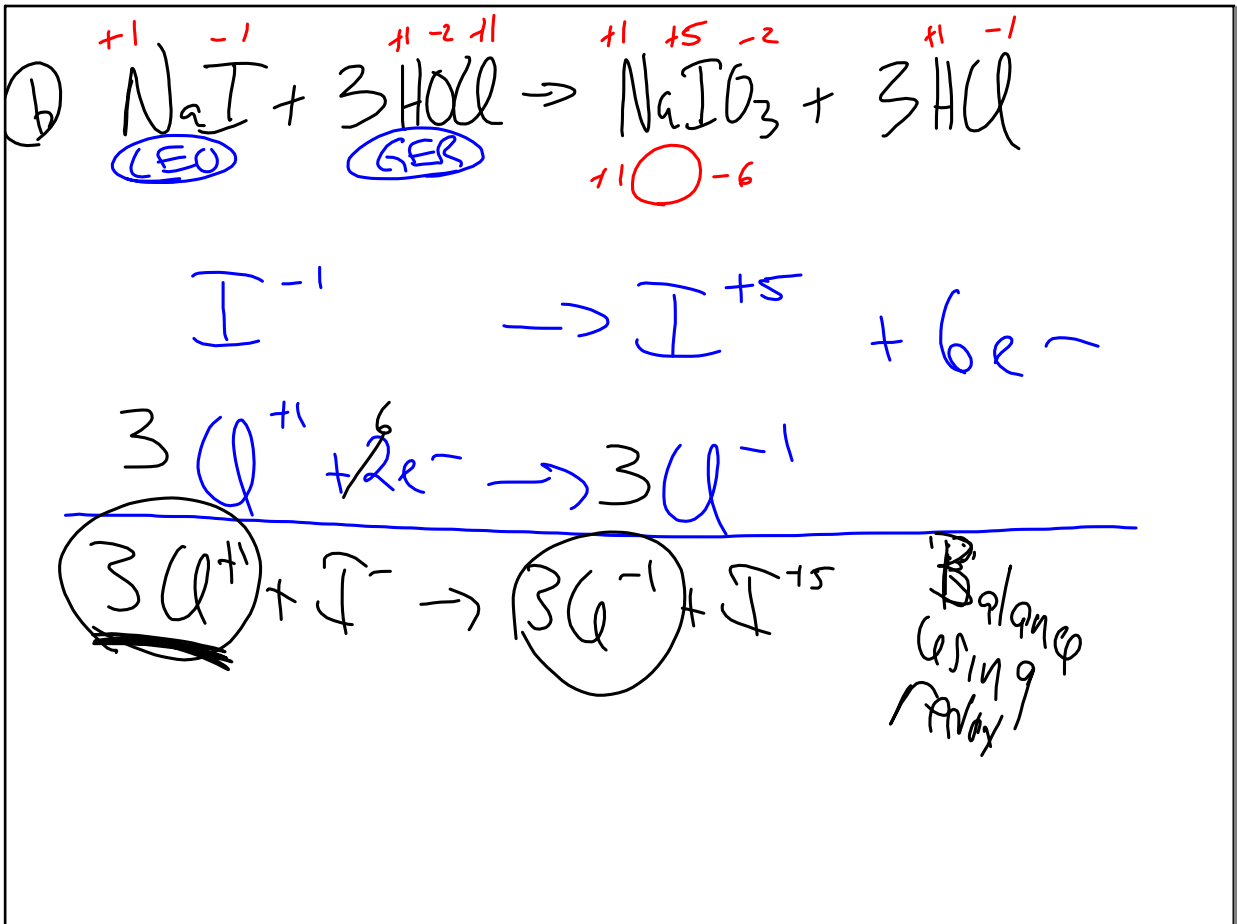 +1 -1 +1 -2 +1 +1 +5 -2 +1 -1
b NaI + 3HOCl → NaIO₃ + 3HCl
LEO GER +1 -6
I⁻¹ → I⁺⁵ + 6e⁻
3Cl⁺¹ + 2e⁻ → 3Cl⁻¹
6
3Cl⁺¹ + I⁻ → 3Cl⁻¹ + I⁺⁵
Balance
using
redox